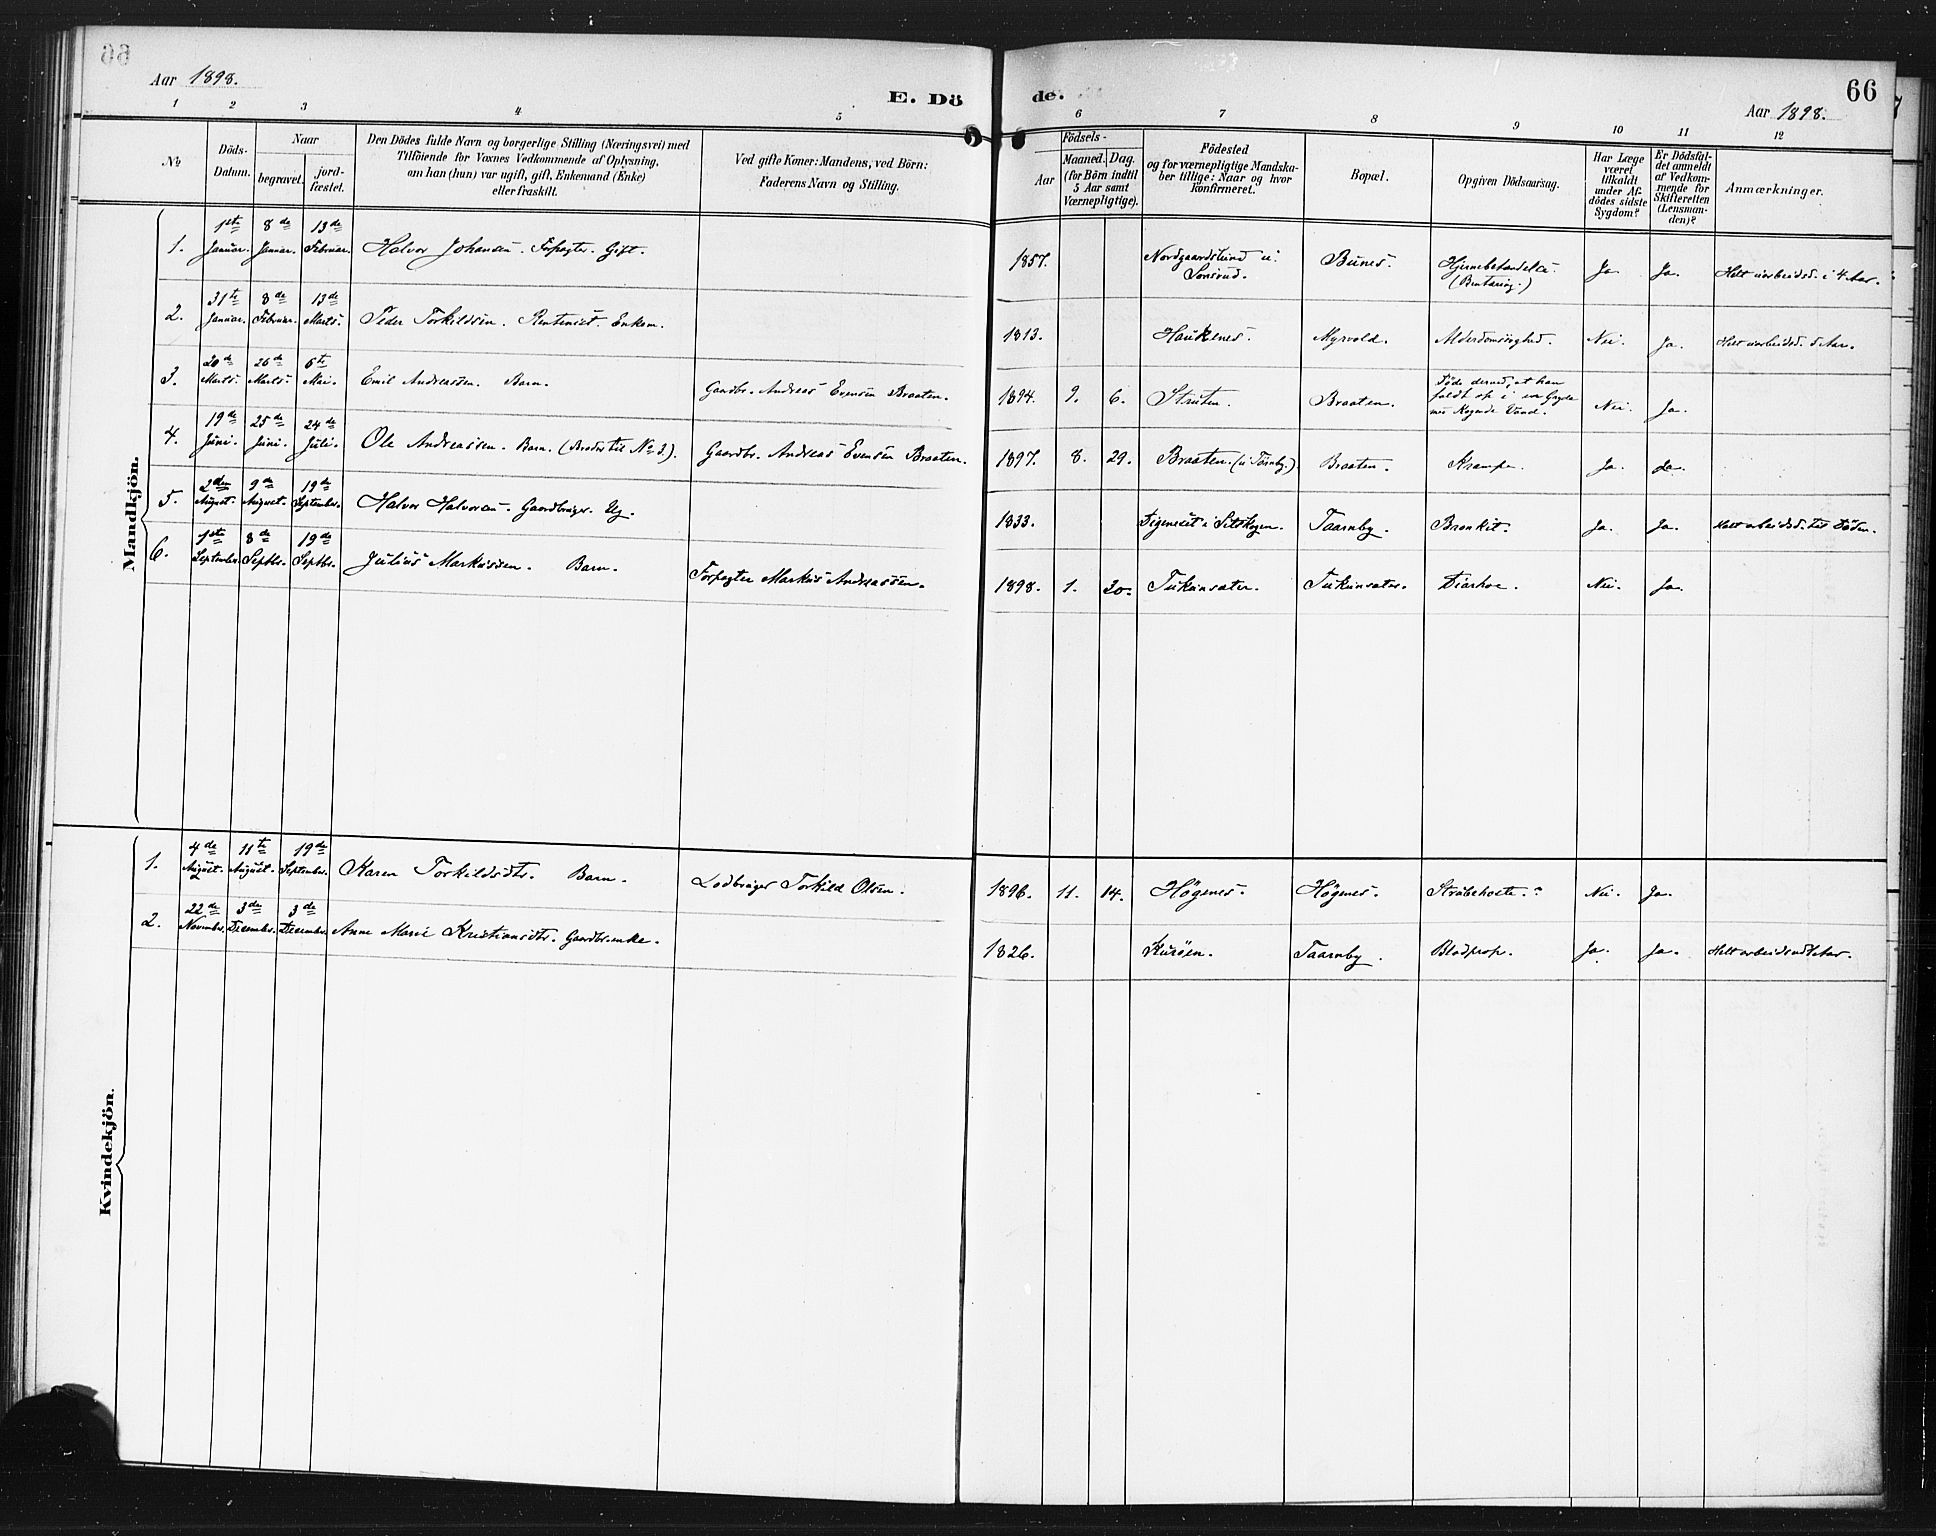 66
Aar 1898.
E. Dö
1 2 3 4 5
№
Döds-Datum.
Naar
begravet.
jord-fæstet.
Den Dödes fulde Navn og borgerlige Stilling (Næringsvei) med
Tilföiende for Voxnes Vedkommende af Oplysning,
om han (hun) var ugift, gift, Enkemand (Enke)
eller fraskilt.
Ved gifte Koner: Mandens, ved Börn:
Faderens Navn og Stilling.
Mandkjön.
1. 1ste Januar. 8de Januar. 13de Februar. Halvor Johansen. Forpagter. Gift.
2. 31te Januar. 8de Februar. 13de Marts. Peder Torkildsen. Rentenist. Enkem.
3. 20de Marts. 26de Marts. 6te Mai. Emil Andreassen. Barn. Gaardbr. Andreas Evensen Braaten.
4. 19de Juni. 25de Juni. 24de Juli. Ole Andreassen. Barn. (Broder til No 3.). Gaardbr. Andreas Evensen Braaten.
5. 2den August. 9de August. 19de September. Halvor Halvorsen. Gaardbruger. Ug.
6. 1ste September. 8de Septbr. 19de Septbr. Julius Markussen. Barn. Forpagter Markus Andreassen.
Kvindekjön.
1. 4de August. 11te August. 19de September. Karen Torkildsdtr. Barn. Lodbruger Torkild Olsen.
2. 22de November. 3de December. 3de December. Anne Marie Kristiansdtr. Gaardbr.enke.
de.
66
Aar 1898.
6 7 8 9 10 11 12
Födsels-
Aar
Maaned. Dag.
(for Börn indtil
5 Aar samt
Værnepligtige).
Födested
og for værnepligtige Mandska-
ber tillige: Naar og hvor
konfirmeret.
Bopæl.
Opgiven Dödsaarsag.
Har Læge
været
tilkaldt
under Af-
dödes sidste
Sygdom?
Er Dödsfal-
det anmeldt
af Vedkom-
mende for
Skifteretten
(Lensman-
den)?
Anmærkninger.
1857. Nordgaardslund u. Sonsrud. Bunes. Ja. Ja. Helt uarbeidsd. i 4 Aar.
1813. Haukenes. Myrvold. Alderdomssvaghed. Nei. Ja. Helt uarbeidsd. 5 Aar.
1894. 9. 6. Struten. Braaten. Döde derved, at han
faldt op i en Gryde
med kogende Vand. Nei. Ja.
1897. 8. 29. Braaten. (u. Törnby.) Braaten. Krampe. Ja. Ja.
1833. Digerneset i Setskogen. Taarnby. Bronkit. Ja. Ja. Helt arbeidsd. til Döden.
1898. 1. 20. Tukunsæter. Tukunsæter. Diarhoe. Nei. Ja.
1896. 11. 14. Högenes. Högenes. Strubehoste.? Nei Ja.
1826. Kuröen. Taarnby. Blodprop. Ja. Ja.